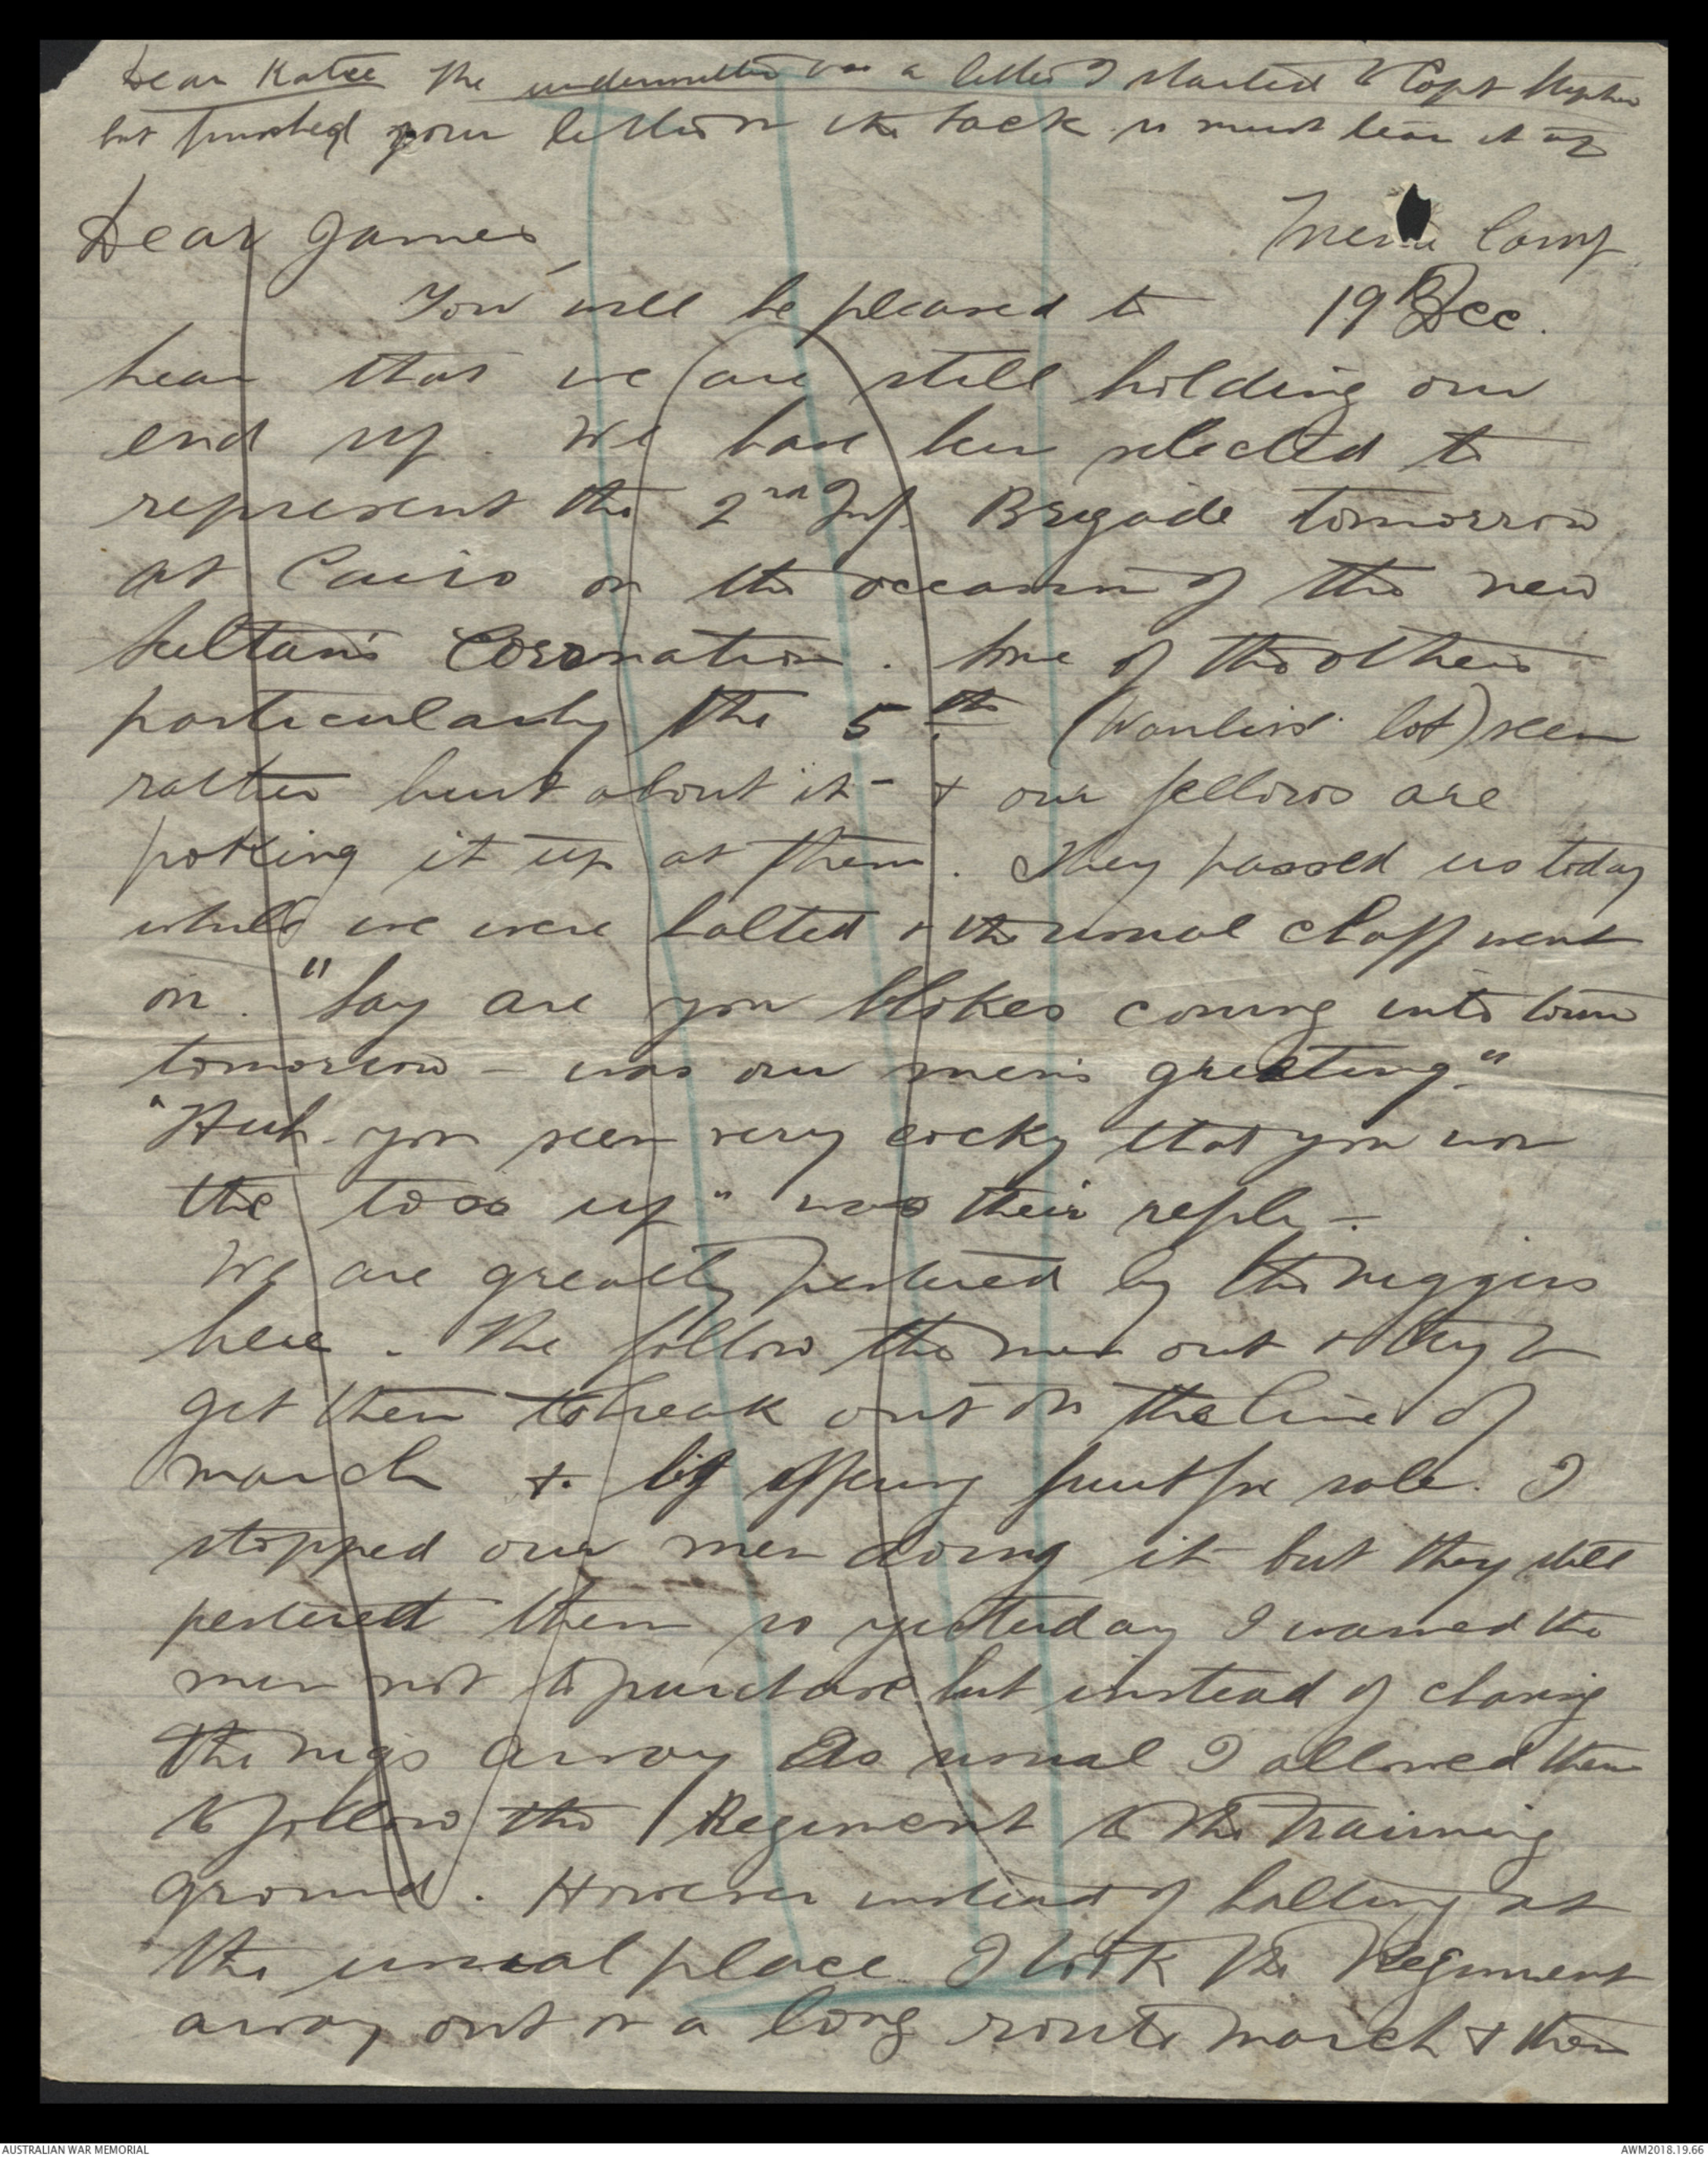 Dear Katie The underwritten was a letter I started to Capt Stephen
but finished your letter on the back so must tear it up
Dear James, Mena Camp
You will be pleased to 19th Dec.
hear that we are still holding our
end up. We have been selected to
represent the 2nd Inf. Brigade tomorrow
at Cairo on the occasion of the new
Sultan's Coronation. Some of the others
particularly the 5th (Wanliss' lot) seem
rather hurt about it - & our fellows are
poking it up at them. They passed us today
while we were halted & the usual chaff went
on. "Say are you blokes coming into town
tomorrow - was our men's greeting."
"Huh - you seem very cocky that you won
the toss up" was their reply -
We are greatly pestered by the niggers
here. The follow the men out & try to
get them to break out on the line of
march & by offering fruit for sale. I
stopped our men doing it but they still
pestered them so yesterday I warned the
men not to purchase but instead of chasing
the nigs away As usual I allowed them
to follow the Regiment to the Training
ground. However instead of halting at
the usual place I took the Regiment
away out on a long route march & then
AUSTRALIAN WAR MEMORIAL AWM2018.19.66